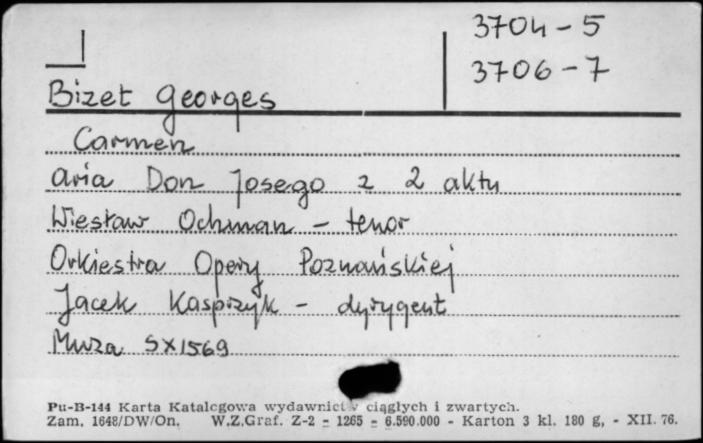 3704-5
3706-7
Bizet Georges
Carmen
aria Don Josego z 2 aktu
Wiesław Ochman - tenor
Orkiestra Opery Poznańskiej
Jacek Kasprzyk - dyrygent
Muza SX1569
Pu-B-144 Karta Katalogowa wydawnictw ciągłych i zwartych.
Zam. 1648/DW/On. W.Z.Graf. Z-2 - 1265 - 6.590.000 - Karton 3 kl. 180 g, - XII. 76.